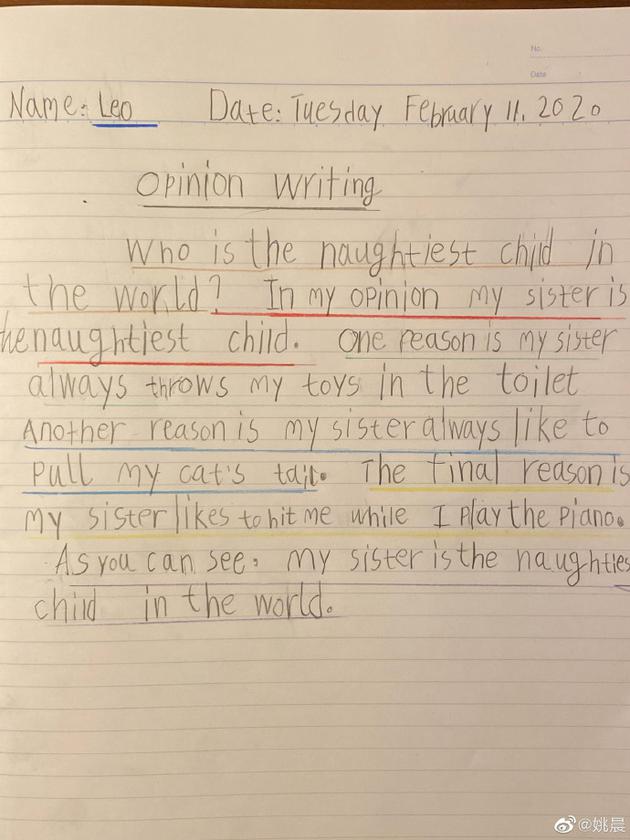 No.
Date
Name: Leo Date: Tuesday February 11. 2020
Opinion Writing
Who is the naughtiest child in
the world? In my opinion my sister is
he naughtiest child. One reason is my sister
always throws my toys in the toilet
Another reason is my sister always like to
pull my cat's tail. The final reason is
my sister likes to hit me while I play the piano.
As you can see. my sister is the naughties
child in the world.
@姚晨